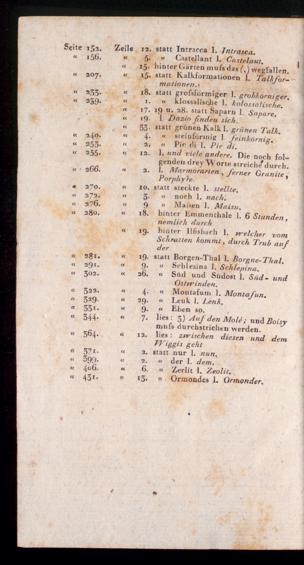 Seite 152. Zeile 12. statt Intrasca l. Intrasca.
" 156. " 5. " Castellant l. Castelant.
" " 15. hinter Gärten muſs das (,) wegfallen.
" 207. " 15. statt Kalkformationen l. Talkfor-
mationen.
" 233. " 18. statt groſsförmiger l. grobkörniger.
" 239. " 1. " klostalische l. kolossalische.
" " 17. 19 u. 28. statt Saparn l. Sapare.
" " 19. l. Dazio finden sich.
" " 33. statt grünen Kalk l. grünen Talk.
" 240. " 4. " steinförmig l. feinkörnig.
" 253. " 2, " Pie di l. Pie di.
" 255. " 12. l. und viele andere. Die noch fol-
genden drey Worte streiche durch.
" 266. " 2. l. Marmorarien, ferner Granite,
Porphyre.
" 270. " 10. statt steckte l. stellte.
" 272. " 3. " noch l. nach.
" 276. " 9 " Maisen l. Maisu.
" 280. " 18. hinter Emmenthale l. 6 Stunden,
nemlich durch
" 19. hinter Ilfisbach l. welcher vom
Schratten kommt, durch Trub auf
der
" 281. " 19. statt Borgen-Thal l. Borgne-Thal.
" 291. " 9. " Schlezina l. Schlepina.
" 302. " 26. " Süd und Südost l. Süd- und
Ostwinden.
" 322. " 4. " Montafum l. Montafun.
" 329. " 29. " Leuk l. Lenk.
" 331. " 9. " Eben so.
" 344. " 7. lies: 3) Auf den Molé; und Boisy
muſs durchstrichen werden.
" 364. " 12. lies: zwischen diesen und dem
Wiggis geht
" 371. " 2. statt nur l. nun.
" 399. " 2. " der l. dem.
" 406. " 6. " Zerlit l. Zeolit.
" 431. " 13. " Ormondes l. Ormonder.